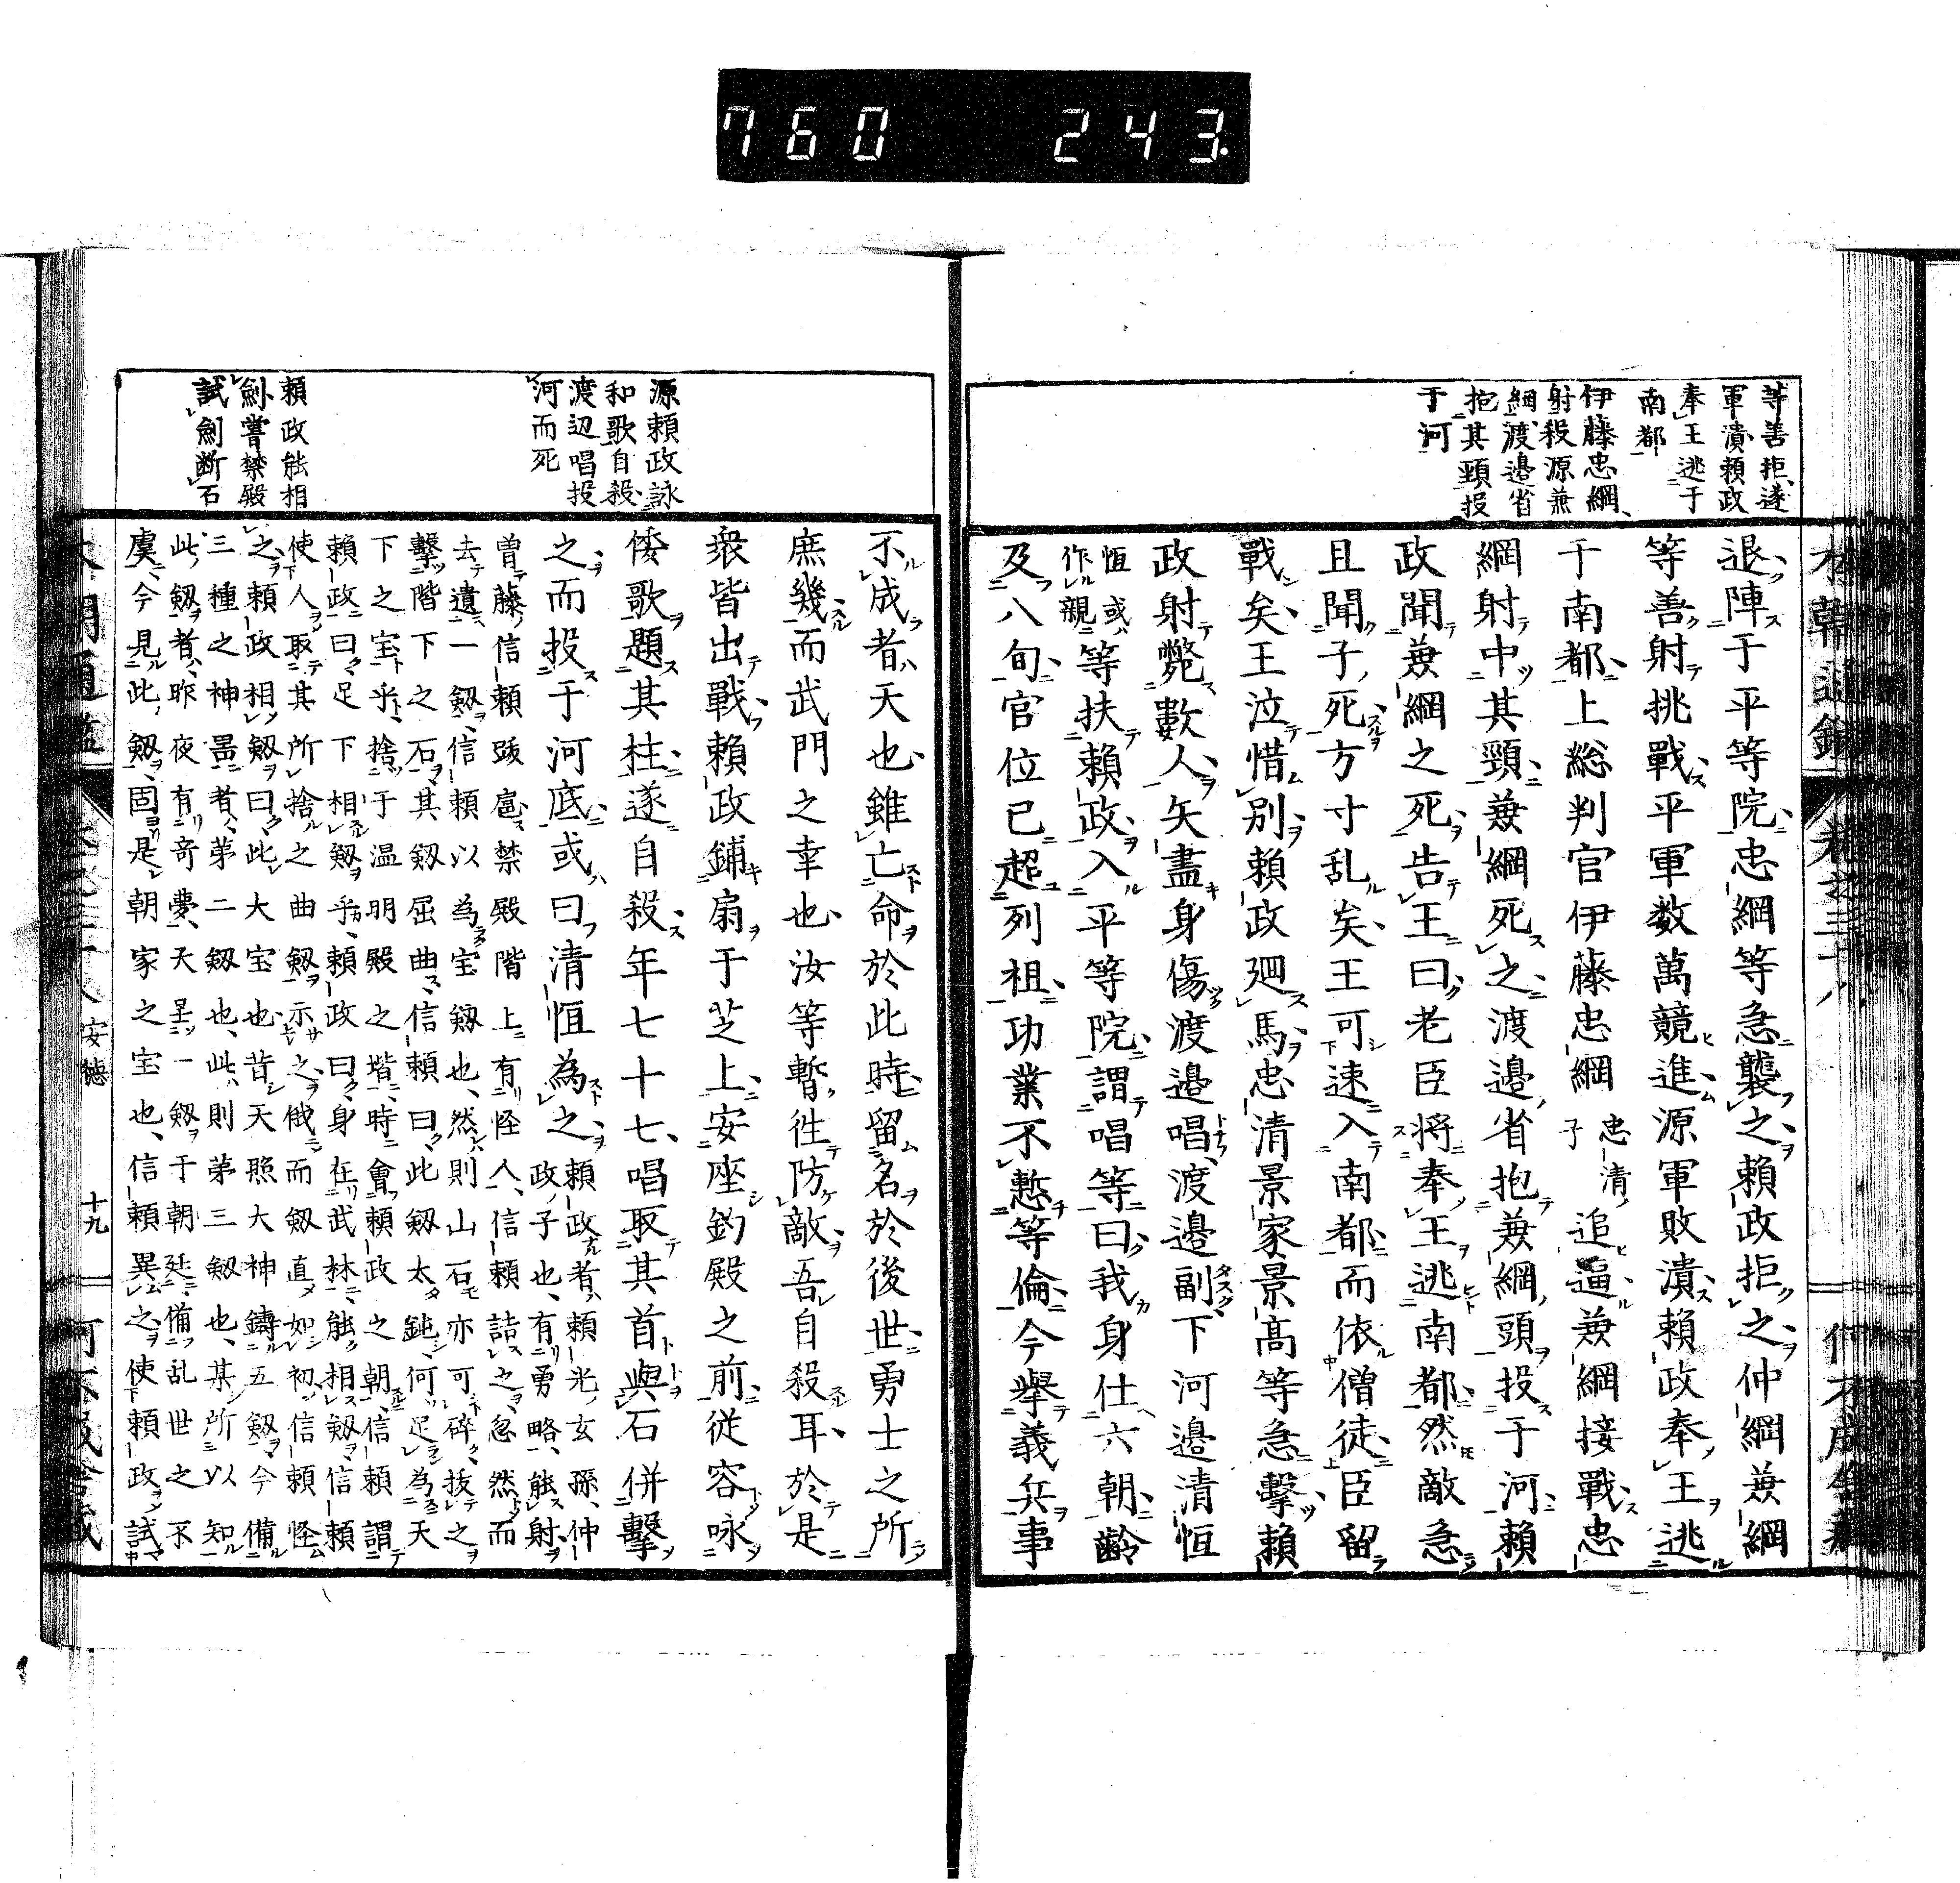 760 243.
等善拒遂
軍潰頼政
奉王逃于
南都
伊藤忠綱
射殺源兼
綱渡邉省
抱其頸投
于河
退陣于平等院忠綱等急襲之頼政拒之仲綱兼綱
等善射挑戰平軍数萬競進源軍敗潰頼政奉王逃
于南都上総判官伊藤忠綱忠清子追逼兼綱接戰忠
綱射中其頸兼綱死之渡邉省抱兼綱頭投于河頼
政聞兼綱之死告王曰老臣将奉王逃南都然敵急
且聞子死方寸乱矣王可速入南都而依僧徒臣留
戰矣王泣惜別頼政廻馬忠清景家景高等急擊頼
政射斃數人矢盡身傷渡邉唱渡邉副下河邉清恒
恒或作親等扶頼政入平等院謂唱等曰我身仕六朝齡
及八旬官位已超列祖功業不慙等倫今擧義兵事
源頼政詠
和歌自殺
渡辺唱投
河而死
頼政能相
劍嘗禁殿
試劍断石
不成者天也雖亡命於此時留名於後世勇士之所
庶幾而武門之幸也汝等暫徃防敵吾自殺耳於是
衆皆出戰頼政鋪扇于芝上安座釣殿之前従容咏
倭歌題其柱遂自殺年七十七唱取其首與石併擊
之而投于河底或曰清恒為之頼政者頼光玄孫仲
政子也有勇略能射
曽藤信頼跋扈禁殿階上有怪人信頼詰之忽然而
去遺一劔信頼以為宝劔也然則山石亦可碎抜之
擊階下之石其劔屈曲信頼曰此劔太鈍何足為天
下之宝乎捨于温明殿之堦時會頼政之朝信頼謂
頼政曰足下相劔乎頼政曰身在武林能相劔信頼
使人取其所捨之曲劔示之俄而劔直如初信頼怪
之頼政相劔曰此大宝也昔天照大神鑄五劔今備
三種之神噐者第二劔也此則第三劔也某所以知
此劔者昨夜有奇夢天呈一劔于朝廷備乱世之不
虞今見此劔固是朝家之宝也信頼異之使頼政試
安徳
十九